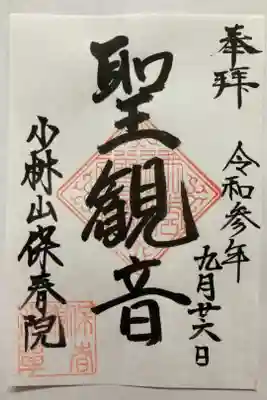 奉拝
令和参年
九月廿六日
聖観音
少林山保春院